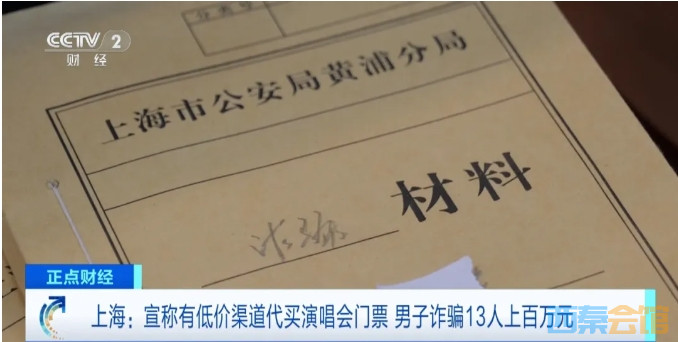 CCTV 2
财经
分类号
上海市公安局黄浦分局
材料
正点财经
上海：宣称有低价渠道代买演唱会门票 男子诈骗13人上百万元
西秦会馆